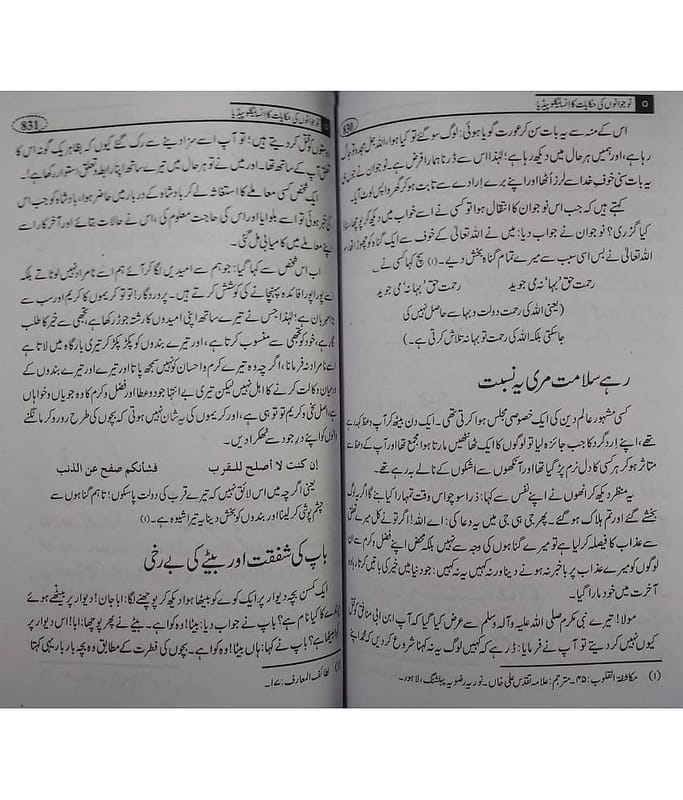 نوجوانوں کی حکایات کا انسائیکلوپیڈیا
830
اس کے منہ سے یہ بات سن کر عورت گویا ہوئی: لوگ سو گئے تو کیا ہوا، اللہ
رہا ہے، اور ہمیں ہر حال میں دیکھ رہا ہے؛ لہٰذا اس سے ڈرنا ہمارا فرض ہے۔ نوجوان نے
یہ بات سنی خوفِ خدا سے لرز اُٹھا اور اپنے برے اِرادے سے تائب ہو کر گھر واپس لوٹ آیا۔
کہتے ہیں کہ جب اس نوجوان کا انتقال ہوا تو کسی نے اسے خواب میں دیکھ کر پوچھا
کیا گزری؟ نوجوان نے جواب دیا: میں نے اللہ تعالیٰ کے خوف سے ایک گناہ کو چھوڑا تھا
اللہ تعالیٰ نے بس اسی سبب سے میرے تمام گناہ بخش دیے۔ (۱) سچ کہا کسی نے
رحمت حق 'بہا' نہ می جوید رحمت حق 'بہانہ' می جوید
(یعنی اللہ کی رحمت دولت و بہا سے حاصل نہیں کی
جاسکتی بلکہ اللہ کی رحمت تو بہانہ تلاش کرتی ہے۔)
رہے سلامت مری یہ نسبت
کسی مشہور عالم دین کی ایک خصوصی مجلس ہوا کرتی تھی۔ ایک دن بیٹھ کر آپ وعظ کہہ رہے
تھے، اپنے اِرد گرد کا جب جائزہ لیا تو لوگوں کا ایک ٹھاٹھیں مارتا ہوا مجمع تھا اور آپ کے وعظ سے
متاثر ہو کر ہر کسی کا دل نرم پڑ گیا تھا اور آنکھوں سے اشکوں کے نالے بہ رہے تھے۔
یہ منظر دیکھ کر انھوں نے اپنے نفس سے کہا: ذرا سوچو اس وقت تمہارا کیا بنے گا اگر یہ لوگ
بخشے گئے اور تم ہلاک ہو گئے۔ پھر جی ہی جی میں یہ دعا کی: اے اللہ! اگر تو نے کل میرے تعلق
سے عذاب کا فیصلہ کر لیا ہے تو میرے گناہوں کی وجہ سے نہیں بلکہ محض اپنے فضل و کرم سے ان
لوگوں کو میرے عذاب پر باخبر نہ ہونے دینا ورنہ کہیں یہ نہ کہیں: جو دنیا میں خیر کی باتیں کرتا رہا
آخرت میں خود مارا گیا۔
مولا! تیرے نبی مکرم صلی اللہ علیہ وآلہ وسلم سے عرض کیا گیا کہ آپ ابن ابی منافق کو قتل
کیوں نہیں کر دیتے تو آپ نے فرمایا: ڈر ہے کہ کہیں لوگ یہ نہ کہنا شروع کر دیں کہ محمد اپنے
(۱) مکاشفۃ القلوب: ۴۵۔ مترجم: علامہ تقدس علی خاں۔ نوریہ رضویہ پبلشنگ، لاہور۔
نوجوانوں کی حکایات کا انسائیکلوپیڈیا
831
دوستوں کو قتل کر دیتے ہیں؛ تو آپ اسے سزا دینے سے رک گئے کیوں کہ بظاہر یک گونہ اس کا
تعلق آپ کے ساتھ تھا۔ اور میں نے تو ہر حال میں تیرے ساتھ اپنا رابطہ و تعلق استوار رکھا ہے!۔
ایک شخص کسی معاملے کا استغاثہ لے کر بادشاہ کے دربار میں حاضر ہوا، بادشاہ کو جب اس
کی خبر ہوئی تو اسے بلوایا اور اس کی حاجت معلوم کی، اس نے حالات بتائے اور آخرکار اسے
اپنے معاملے میں کامیابی مل گئی۔
اب اس شخص سے کہا گیا: جو ہم سے امیدیں لگا کر آئے ہم اسے نامراد نہیں لوٹاتے بلکہ
اسے پورا پورا فائدہ پہنچانے کی کوشش کرتے ہیں۔ پروردگار! تو تو کریموں کا کریم اور سب سے
بڑا مہربان ہے؛ لہٰذا جس نے تیرے ساتھ اپنی امیدوں کا رشتہ جوڑ رکھا ہے، تجھی سے خیر کا طلب
گار ہے، خود کو تجھی سے منسوب کرتا ہے، اور تیرے بندوں کو پکڑ پکڑ کر تیری بارگاہ میں لاتا ہے
اسے نامراد نہ فرمانا، اگرچہ وہ تیرے کرم و احسان کو نہیں سمجھ پاتا اور تیرے اور تیرے بندوں کے
درمیان وکالت کرنے کا اہل نہیں لیکن تیری بے انتہا جود و عطا اور فضل و کرم کا وہ جویاں و خواہاں
ہے، اصل سخی و کریم تو تو ہی ہے، اور کریموں کی یہ شان نہیں ہوتی کہ بچوں کی طرح رو رو کر مانگنے
والوں کو اپنے درِ جود سے ٹھکرا دیں۔
إن كنت لا أصلح للقرب فشأنكم صفح عن الذنب
یعنی اگرچہ میں اس لائق نہیں کہ تیرے قرب کی دولت پا سکوں؛ تاہم گناہوں سے
چشم پوشی کر لینا اور بندوں کو بخش دینا یہ تیرا شیوہ ہے۔ (۱)
باپ کی شفقت اور بیٹے کی بے رخی
ایک کمسن بچہ دیوار پر ایک کوے کو بیٹھا ہوا دیکھ کر پوچھنے لگا: ابا جان! دیوار پر بیٹھے ہوئے
پرندے کا کیا نام ہے؟ باپ نے جواب دیا: بیٹا! وہ کوا ہے۔ بیٹے نے پھر پوچھا: ابا! اس دیوار پر
بیٹھا ہے؟ باپ نے کہا: ہاں بیٹا! وہ کوا ہے۔ بچوں کی فطرت کے مطابق وہ بچہ بار بار یہی کہتا
(۱) لطائف المعارف: ۱۷۔